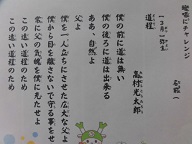 道程
高村光太郎
僕の前に道は無い
僕の後ろに道は出来る
ああ、自然よ
父よ
僕を一人立ちにさせた広大な父よ
僕から目を離さないで守る事をせよ
常に父の気魄を僕に充たせよ
この遠い道程のため
この遠い道程のため